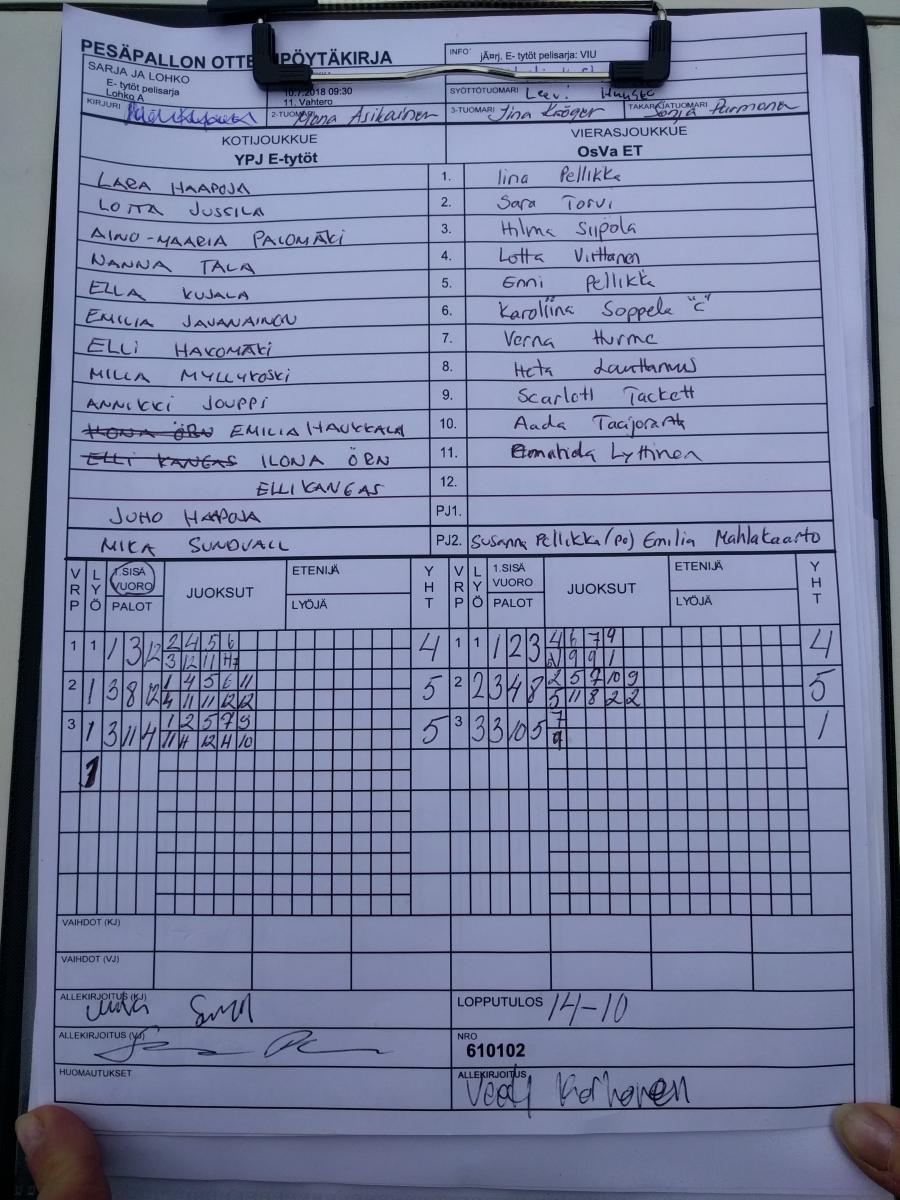 PESÄPALLON OTTE PÖYTÄKIRJA
INFO' jÄ¤rj. E- tytöt pelisarja: VIU
SARJA JA LOHKO
E- tytöt pelisarja
Lohko A
10.7.2018 09:30
11. Vahtero
SYÖTTÖTUOMARI Leevi
KIRJURI 2-TUOMARI Mona Asikainen 3-TUOMARI Tina Kröger TAKARAJATUOMARI Sonja Parmanen
KOTIJOUKKUE VIERASJOUKKUE
YPJ E-tytöt OsVa ET
LARA HAAPOJA 1. Iina Pellikka
LOTTA JUSSILA 2. Sara Torvi
AINO-MAARIA PALOMÄKI 3. Hilma Siipola
NANNA TALA 4. Lotta Virttanen
ELLA KUJALA 5. Enni Pellikka
EMILIA JAVANAINEN 6. Karoliina Soppela "C"
ELLI HAKOMÄKI 7. Verna Hurme
MILLA MYLLYKOSKI 8. Heta Lauttamus
ANNIKKI JOUPPI 9. Scarlott Tackett
ILONA ÖRN EMILIA HAUKKALA 10. Aada
ELLI KANGAS ILONA ÖRN 11. Lyttinen
ELLI KANGAS 12.
JUHO HAAPOJA PJ1.
MIKA SUNDVALL PJ2. Susanna Pellikka (po) Emilia Mahlakaarto
VRP LYÖ 1.SISÄ VUORO PALOT JUOKSUT ETENIJÄ LYÖJÄ YHT VRP LYÖ 1.SISÄ VUORO PALOT JUOKSUT ETENIJÄ LYÖJÄ YHT
1 1 1 3 12 2 4 5 6 4 1 1 1 2 3 4 6 7 9 4
3 12 11 9 9 1
2 1 3 8 12 1 4 5 6 11 5 2 2 3 4 8 2 5 7 10 9 5
4 11 11 12 12 5 11 8 2 2
3 1 3 11 4 1 2 5 7 9 5 3 3 3 10 5 7 1
11 4 12 4 10 9
1
VAIHDOT (KJ)
VAIHDOT (VJ)
ALLEKIRJOITUS (KJ) LOPPUTULOS 14-10
ALLEKIRJOITUS (VJ) NRO
610102
HUOMAUTUKSET ALLEKIRJOITUS Veeti Korhonen